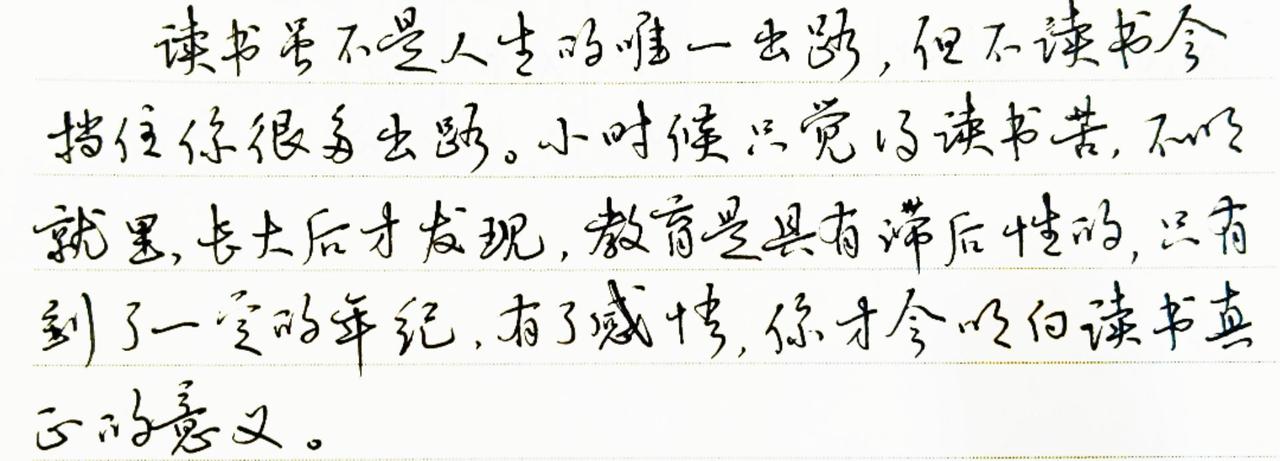 读书虽不是人生的唯一出路，但不读书会
挡住你很多出路。小时候只觉得读书苦，不明
就里，长大后才发现，教育是具有滞后性的，只有
到了一定的年纪，有了感悟，你才会明白读书真
正的意义。